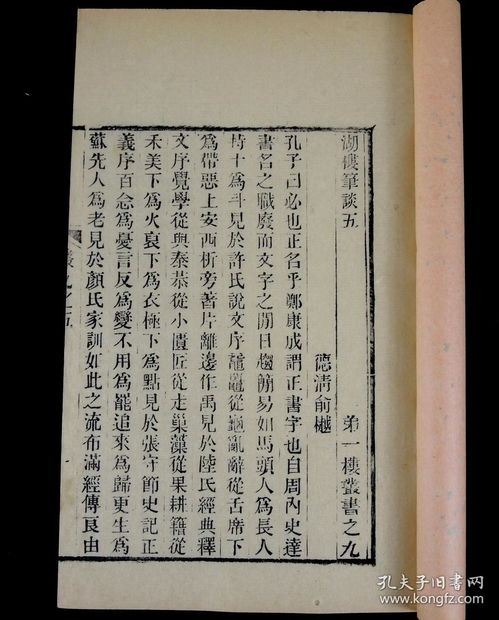 湖樓筆談五
第一樓叢書之九
德清俞樾
孔子曰必也正名乎鄭康成謂正書字也自周內史達
書名之職廢而文字之閒日趨簡易如馬頭人爲長人
持十爲斗見於許氏說文序黿鼉從龜亂辭從舌席下
爲帶惡上安西析旁著片離邊作禹見於陸氏經典釋
文序覺學從與泰恭從小匱匠從走巢藻從果耕籍從
禾美下爲火哀下爲衣極下爲點見於張守節史記正
義序百念爲憂言反爲變不用爲罷追來爲歸更生爲
蘇先人爲老見於顏氏家訓如此之流布滿經傳良由
孔夫子旧书网
www.kongfz.com